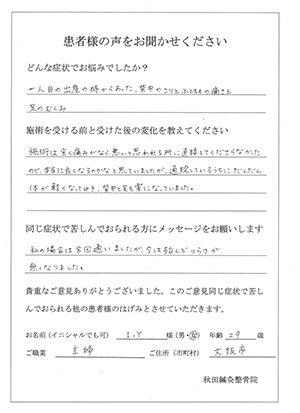 患者様の声をお聞かせください
どんな症状でお悩みでしたか？
一人目の出産の時からあった、背中のこりと、ふとももの痛さと
足のむくみ
施術を受ける前と受けた後の変化を教えてください
施術は全く痛みがなく悪いと思われる所に直接してくださらなかった
ので、本当に良くなるのかなと思っていましたが、通院しているうちにだんだん
体が軽くなってゆき、背中と足も楽になっていました。
同じ症状で苦しんでおられる方にメッセージをお願いします
私の場合は 回通いましたが、今は殆んどつらさが
無くなりました。
貴重なご意見ありがとうございました。このご意見同じ症状で苦し
んでおられる他の患者様のはげみとさせていただきます。
お名前（イニシャルでも可） 様（男・女） 年齢 29 歳
ご職業 主婦 ご住所（市町村） 大阪市
秋田鍼灸整骨院